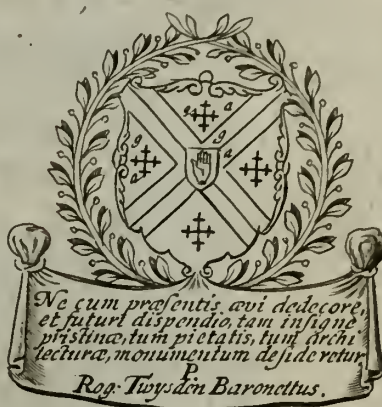 g a
g g
a a
Ne cum præsentis, ævi dedecore,
et futuri dispendio, tam insigne
pristinæ, tum pietatis, tum archi
tecturæ, monumentum desideretur
P.
Rog: Twysden Baronettus.